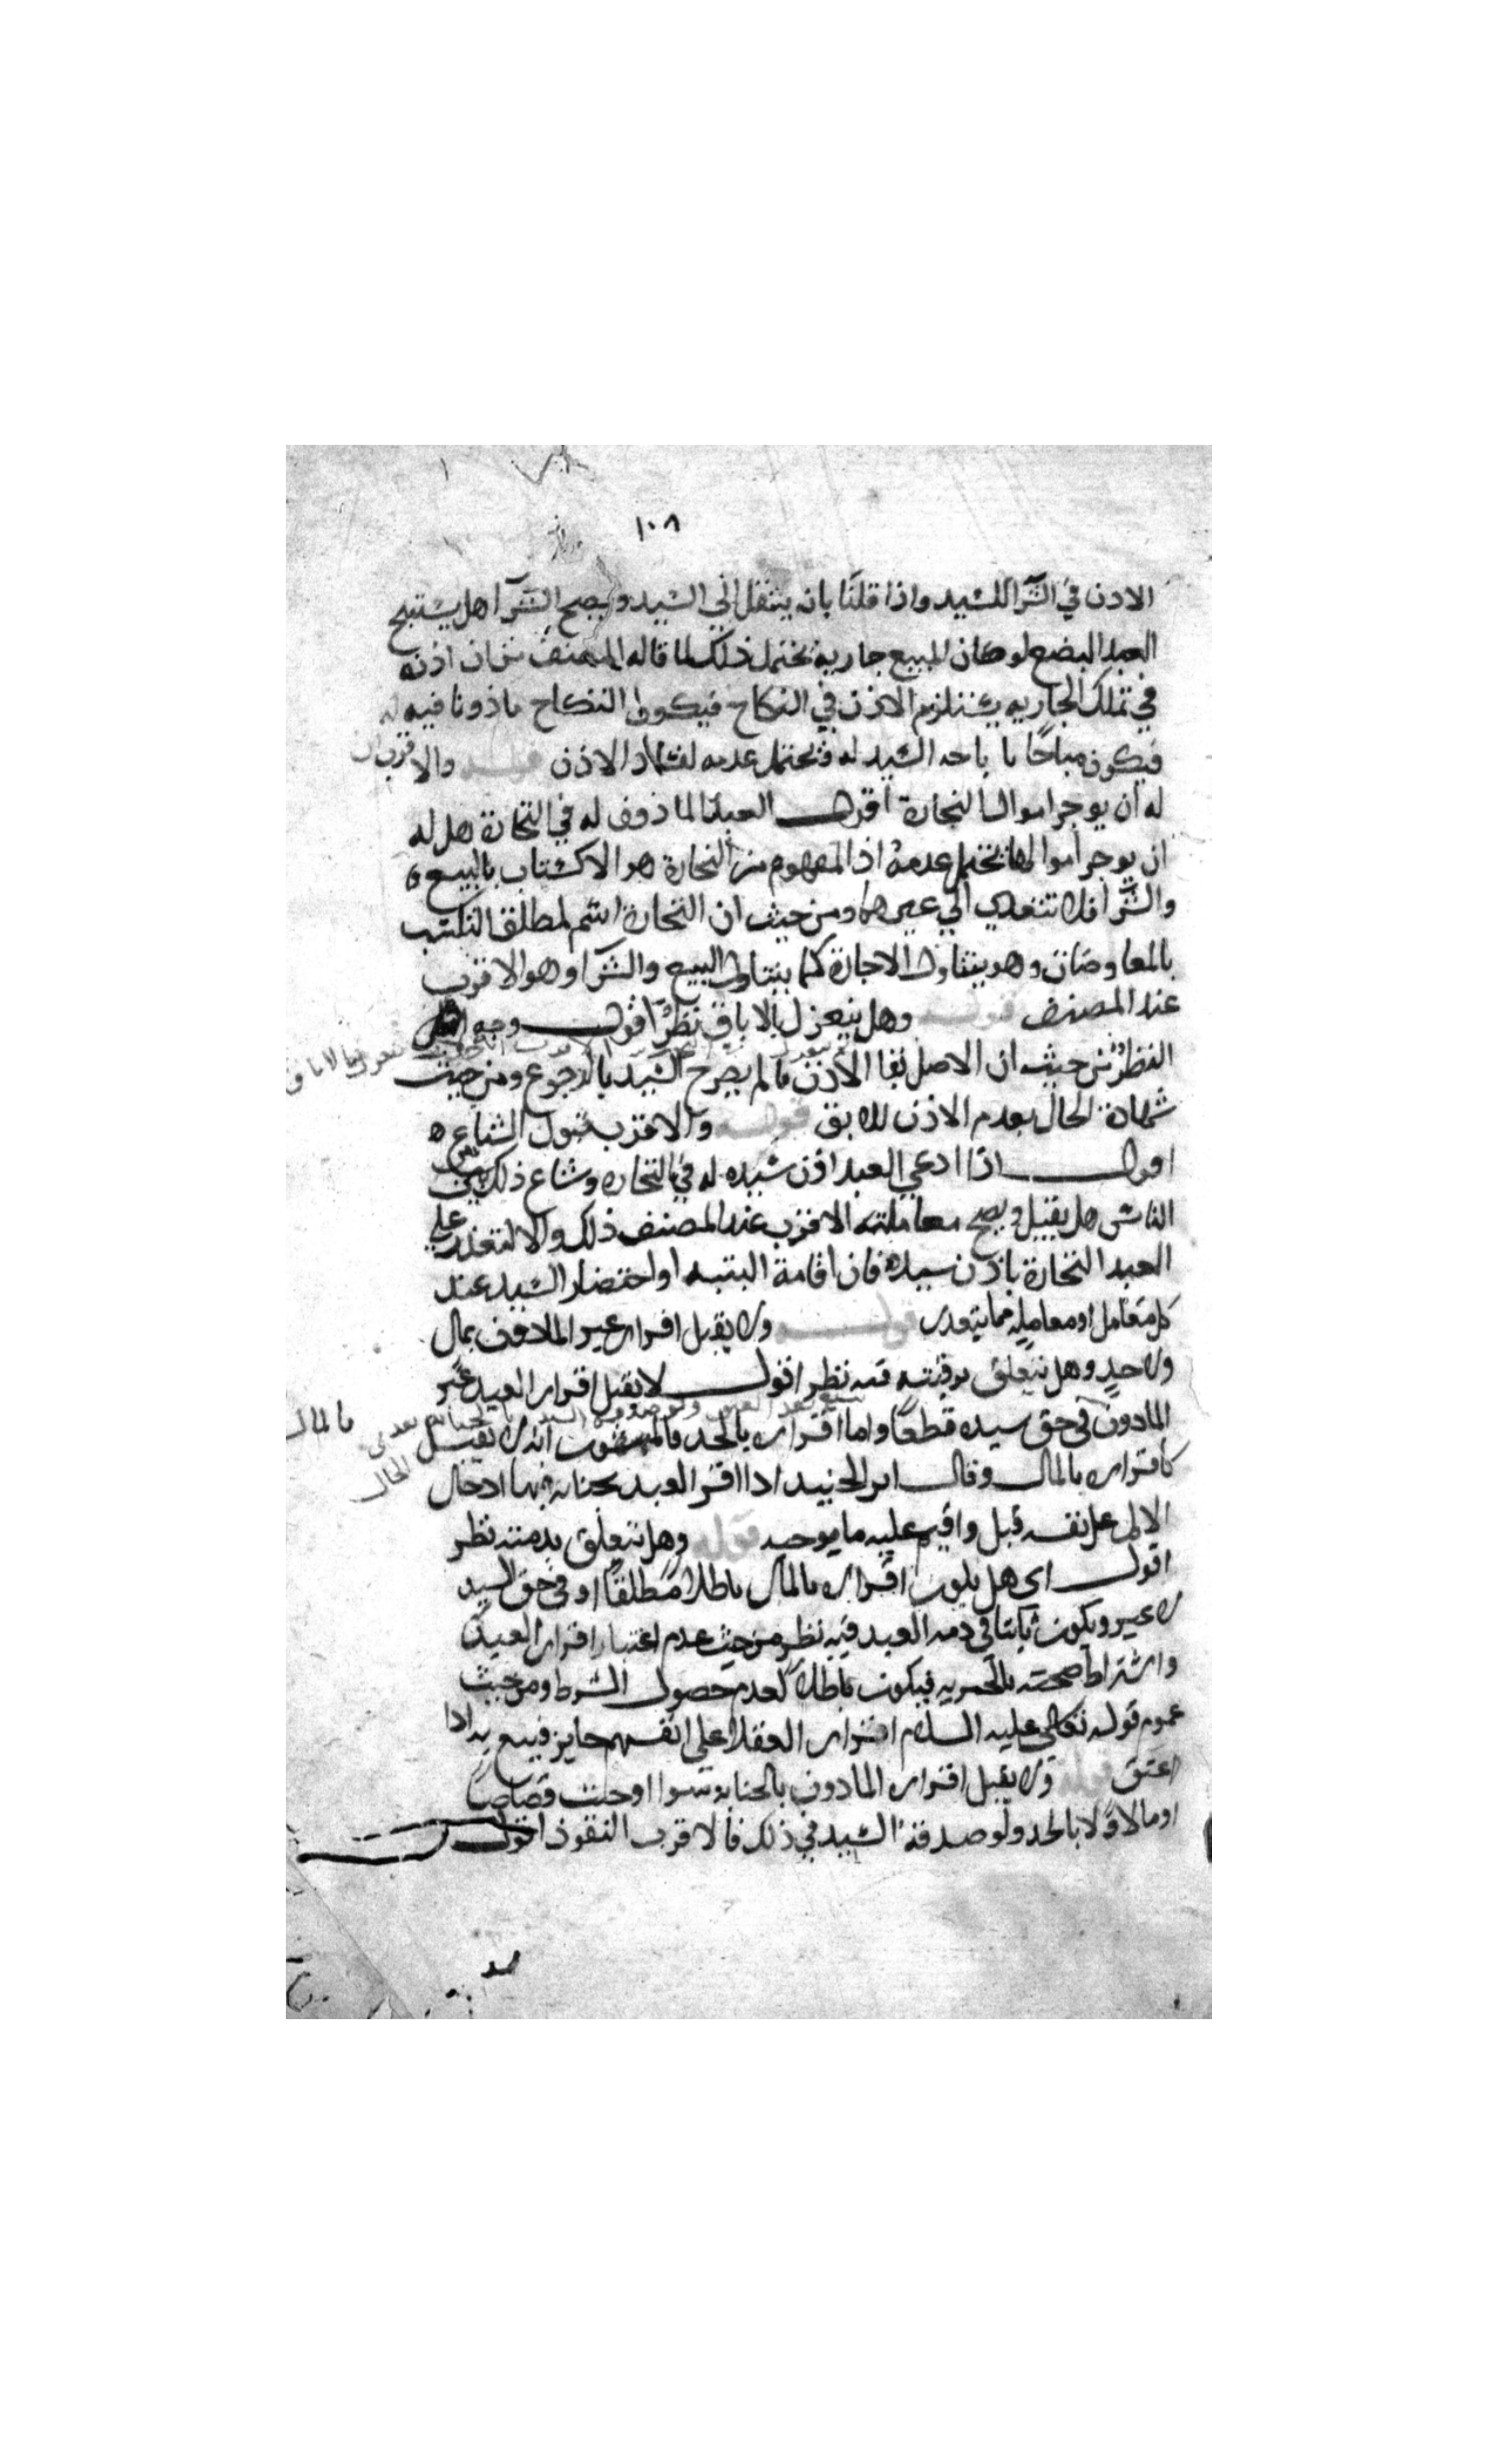 ١٠٨
الاذن في الشرا للسيد واذا قلنا بانه ينتقل الي السيد ويصح الشرا هل يستبيح
العبد البضع لو كان المبيع جارية يحتمل ذلك لما قاله المصنف من ان اذنه
في تملك الجاريه يستلزم الاذن في النكاح فيكون النكاح ماذونا فيه له
فيكون مباحا باباحه السيد له ويحتمل عدمه لفساد الاذن قوله والاقرب ان
له ان يوجر اموال التجارة اقول العبد الماذون له في التجارة هل له
ان يوجر اموالها يحتمل عدمه اذ المفهوم من التجارة هو الاكتساب بالبيع
والشرا فلا تتعدي الي غيرهما ومن حيث ان التجارة اسم لمطلق التكسب
بالمعاوضات وهو يتناول الاجارة كما يتناول البيع والشرا وهو الاقرب
عند المصنف قوله وهل ينعزل بالاباق نظر اقول وجه
النظر من حيث ان الاصل بقا الاذن ما لم يصرح السيد بالرجوع ومن حيث
شهادة الحال بعدم الاذن للابق قوله والاقرب قبول الشياع
اقول اذا ادعي العبد اذن سيده له في التجاره وشاع ذلك بين
الناس هل يقبل ويصح معاملته الاقرب عند المصنف ذلك والا لتعذر علي
العبد التجارة باذن سيده فان اقامة البينه او احتضار السيد عند
كل متعامل او معامله مما يتعذر قوله ولا يقبل اقرار غير الماذون بمال
ولا حد وهل يتعلق برقبته فيه نظر اقول لا يقبل اقرار العبد غير
الماذون في حق سيده قطعا واما اقراره بالحد فالمشهور انه لا يقبل
كاقراره بالمال وقال ابن الجنيد اذا اقر العبد بجنايه فيها ادخال
الالم على نفسه قبل واقيم عليه ما يوجبه قوله وهل يتعلق بذمته نظر
اقول اى هل يكون اقراره بالمال باطلا مطلقا او في حق السيد
لا غير ويكون ثابتا في ذمه العبد فيه نظر من حيث عدم اعتبار اقرار العبد
واشتراط صحته بالحريه فيكون باطلا لعدم حصول الشرط ومن حيث
عموم قوله عليه السلام اقرار العقلا على انفسهم جايز فيتبع به اذا
اعتق قوله ولا يقبل اقرار الماذون بالجنايه سوا اوجبت قصاصا
او مالا ولا بالحد ولو صدقه السيد في ذلك فالاقرب النفوذ اقول